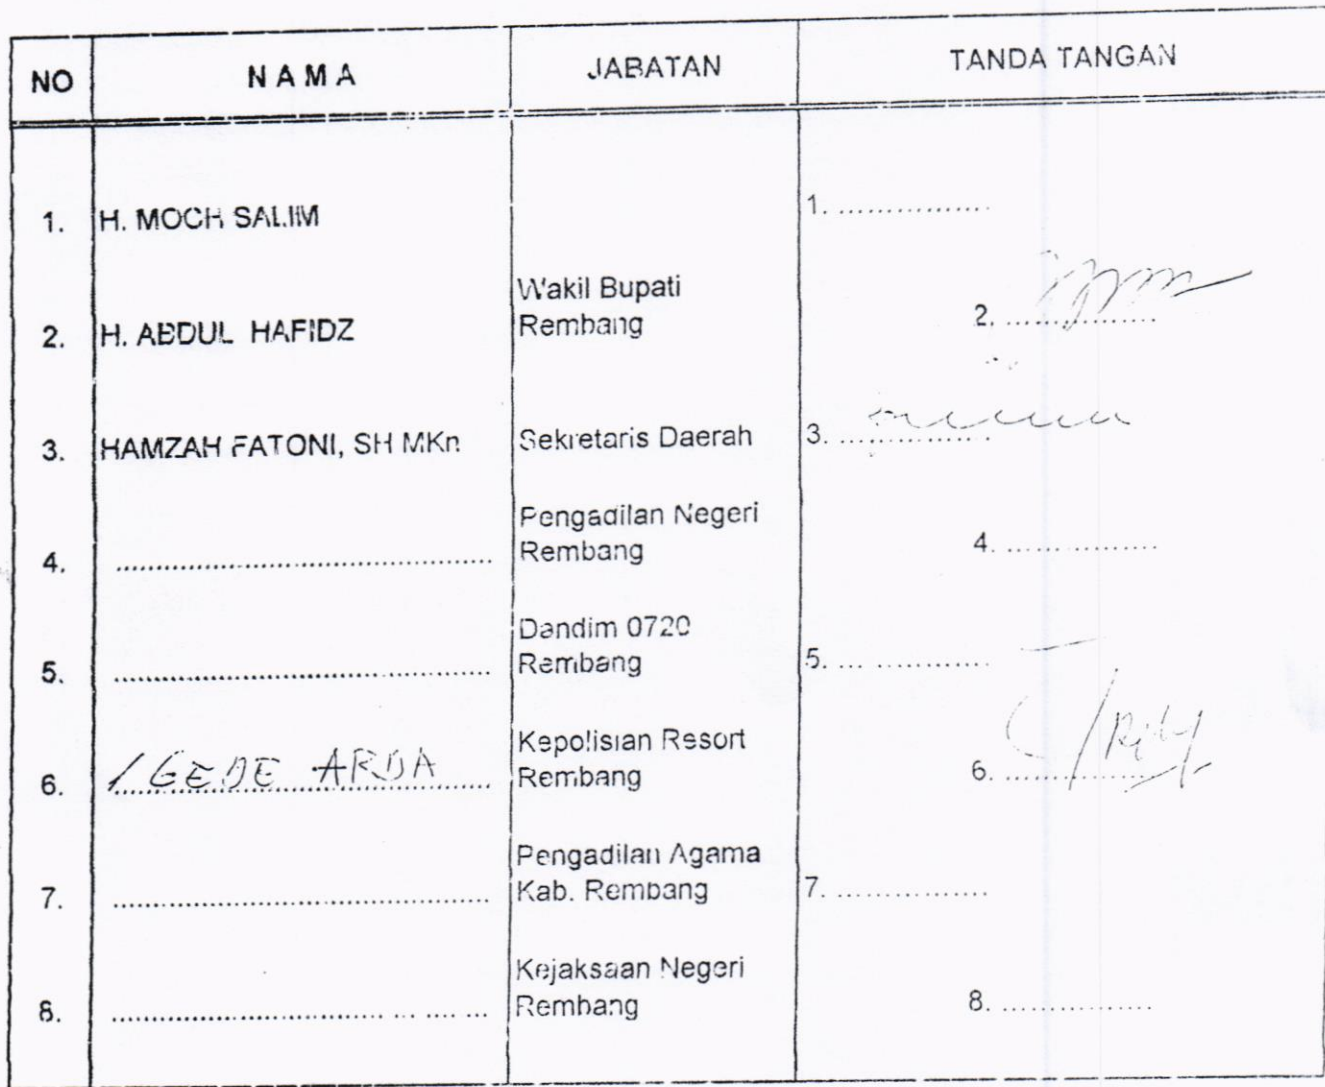 NO NAMA JABATAN TANDA TANGAN
1. H. MOCH SALIM 1. ................
2. H. ABDUL HAFIDZ Wakil Bupati
Rembang 2. ................
3. HAMZAH FATONI, SH MKn Sekretaris Daerah 3. ................
4. ................ Pengadilan Negeri
Rembang 4. ................
5. ................ Dandim 0720
Rembang 5. ................
6. I GEDE ARDA Kepolisian Resort
Rembang 6. ................
7. ................ Pengadilan Agama
Kab. Rembang 7. ................
8. ................ Kejaksaan Negeri
Rembang 8. ................